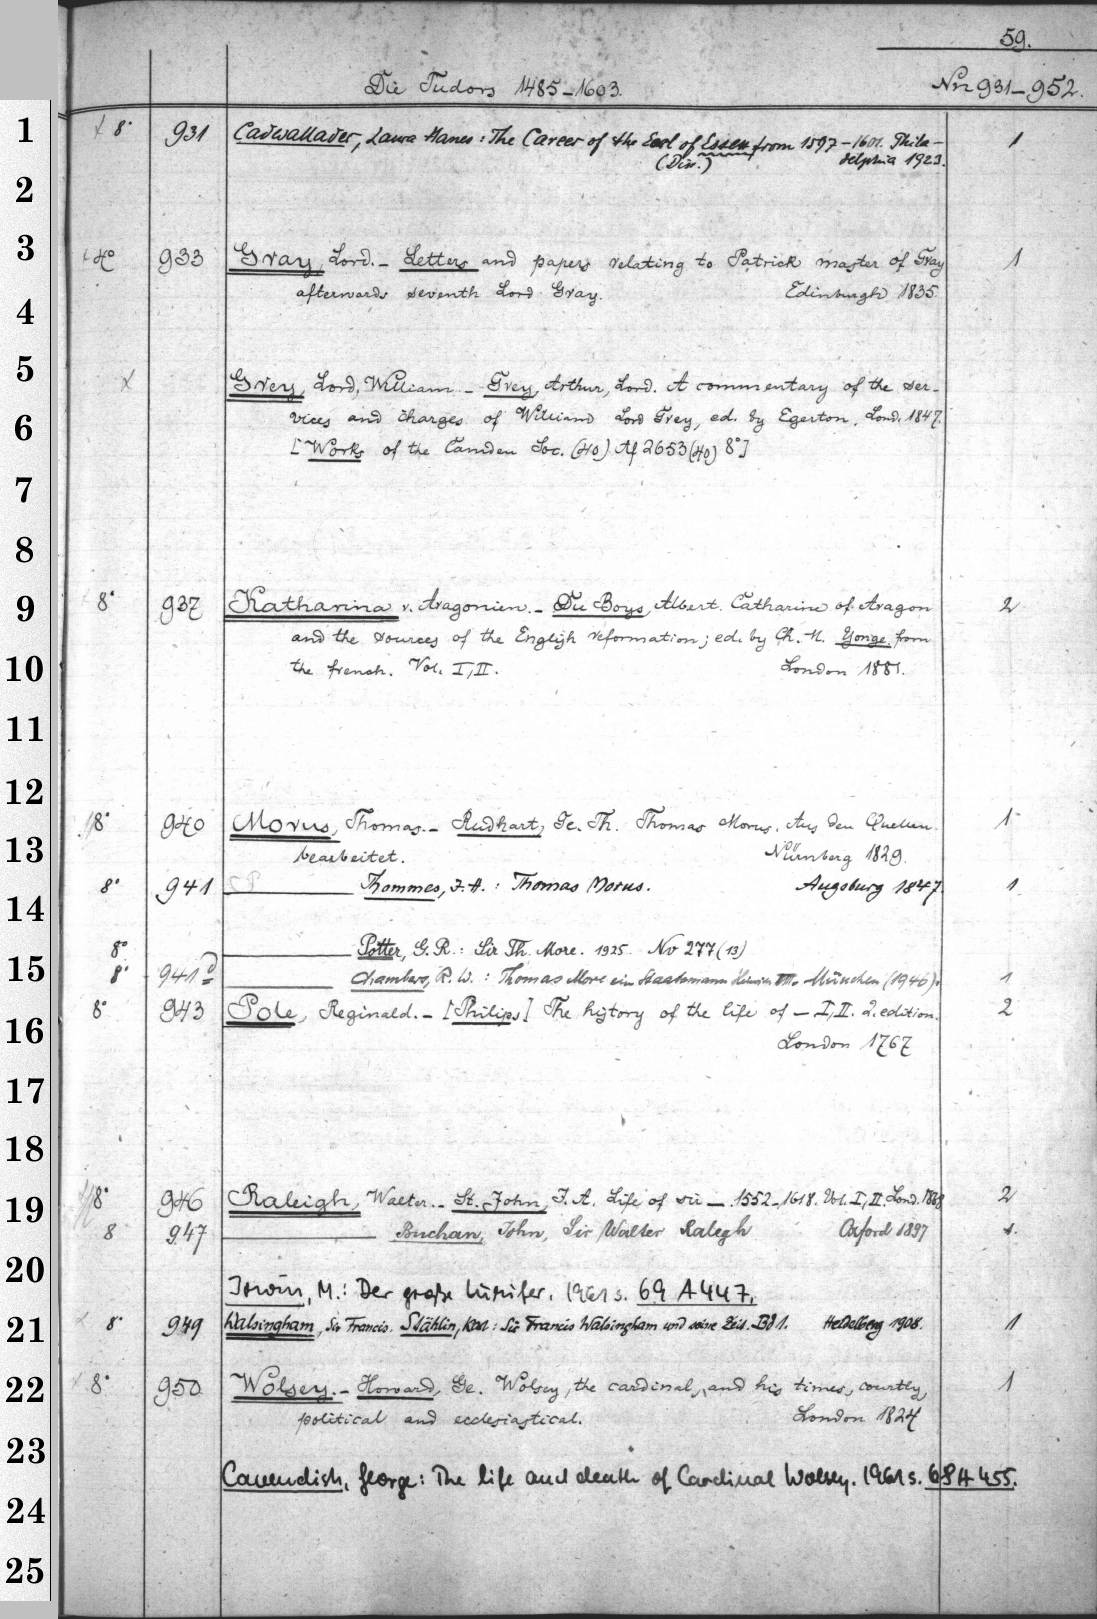 59.
Die Tudors 1485-1603. Nrr 931-952.
1 8° 931 Cadwallader, Laura Hanes: The Career of the Earl of Essex from 1597-1601. Phila- 1
(Diss.) delphia 1923.
2
3 4° 933 Gray, Lord. - Letters and papers relating to Patrick master of Gray 1
afterwards seventh Lord Gray. Edinburgh 1835.
4
5 x Grey, Lord, William - Grey, Arthur, Lord. A commentary of the ser-
6 vices and charges of William Lord Grey, ed. by Egerton. Lond. 1847.
[Works of the Camden Soc. (40) Af 2653(40) 8°]
7
8
9 8° 937 Katharina v. Aragonien. - Du Boys, Albert. Catharine of Aragon 2
and the sources of the English reformation; ed. by Ch. M. Yonge from
10 the french. Vol. I, II. London 1881.
11
12
13 8° 940 Morus, Thomas. - Rudhart, Ge. Th. Thomas Morus. Aus den Quellen 1
bearbeitet. Nürnberg 1829.
14 8° 941 Thommes, J. H.: Thomas Morus. Augsburg 1847. 1
8° Potter, G. R.: Sir Th. More. 1925. No 277(13)
15 8° 941d Chambers, R. W.: Thomas More ein Staatsmann Heinrichs VIII. München (1946). 1
16 8° 943 Pole, Reginald. - [Philips] The history of the life of - I, II. 2. edition. 2
London 1767
17
18
19 8° 946 Raleigh, Walter. - St. John, J. A. Life of sir - 1552-1618. Vol. I, II. Lond. 1868 2
8 947 Buchan, John, Sir Walter Ralegh Oxford 1897 1.
20
Irwin, M.: Der große Luzifer. 1961 s. 69 A 447.
21 8° 949 Walsingham, Sir Francis. Stählin, Karl: Sir Francis Walsingham und seine Zeit. Bd 1. Heidelberg 1908. 1
22 8° 950 Wolsey. - Howard, Ge. Wolsey, the cardinal, and his times, courtly, 1
political and ecclesiastical. London 1824
23
Cavendish, George: The life and death of Cardinal Wolsey. 1961 s. 68 A 455.
24
25